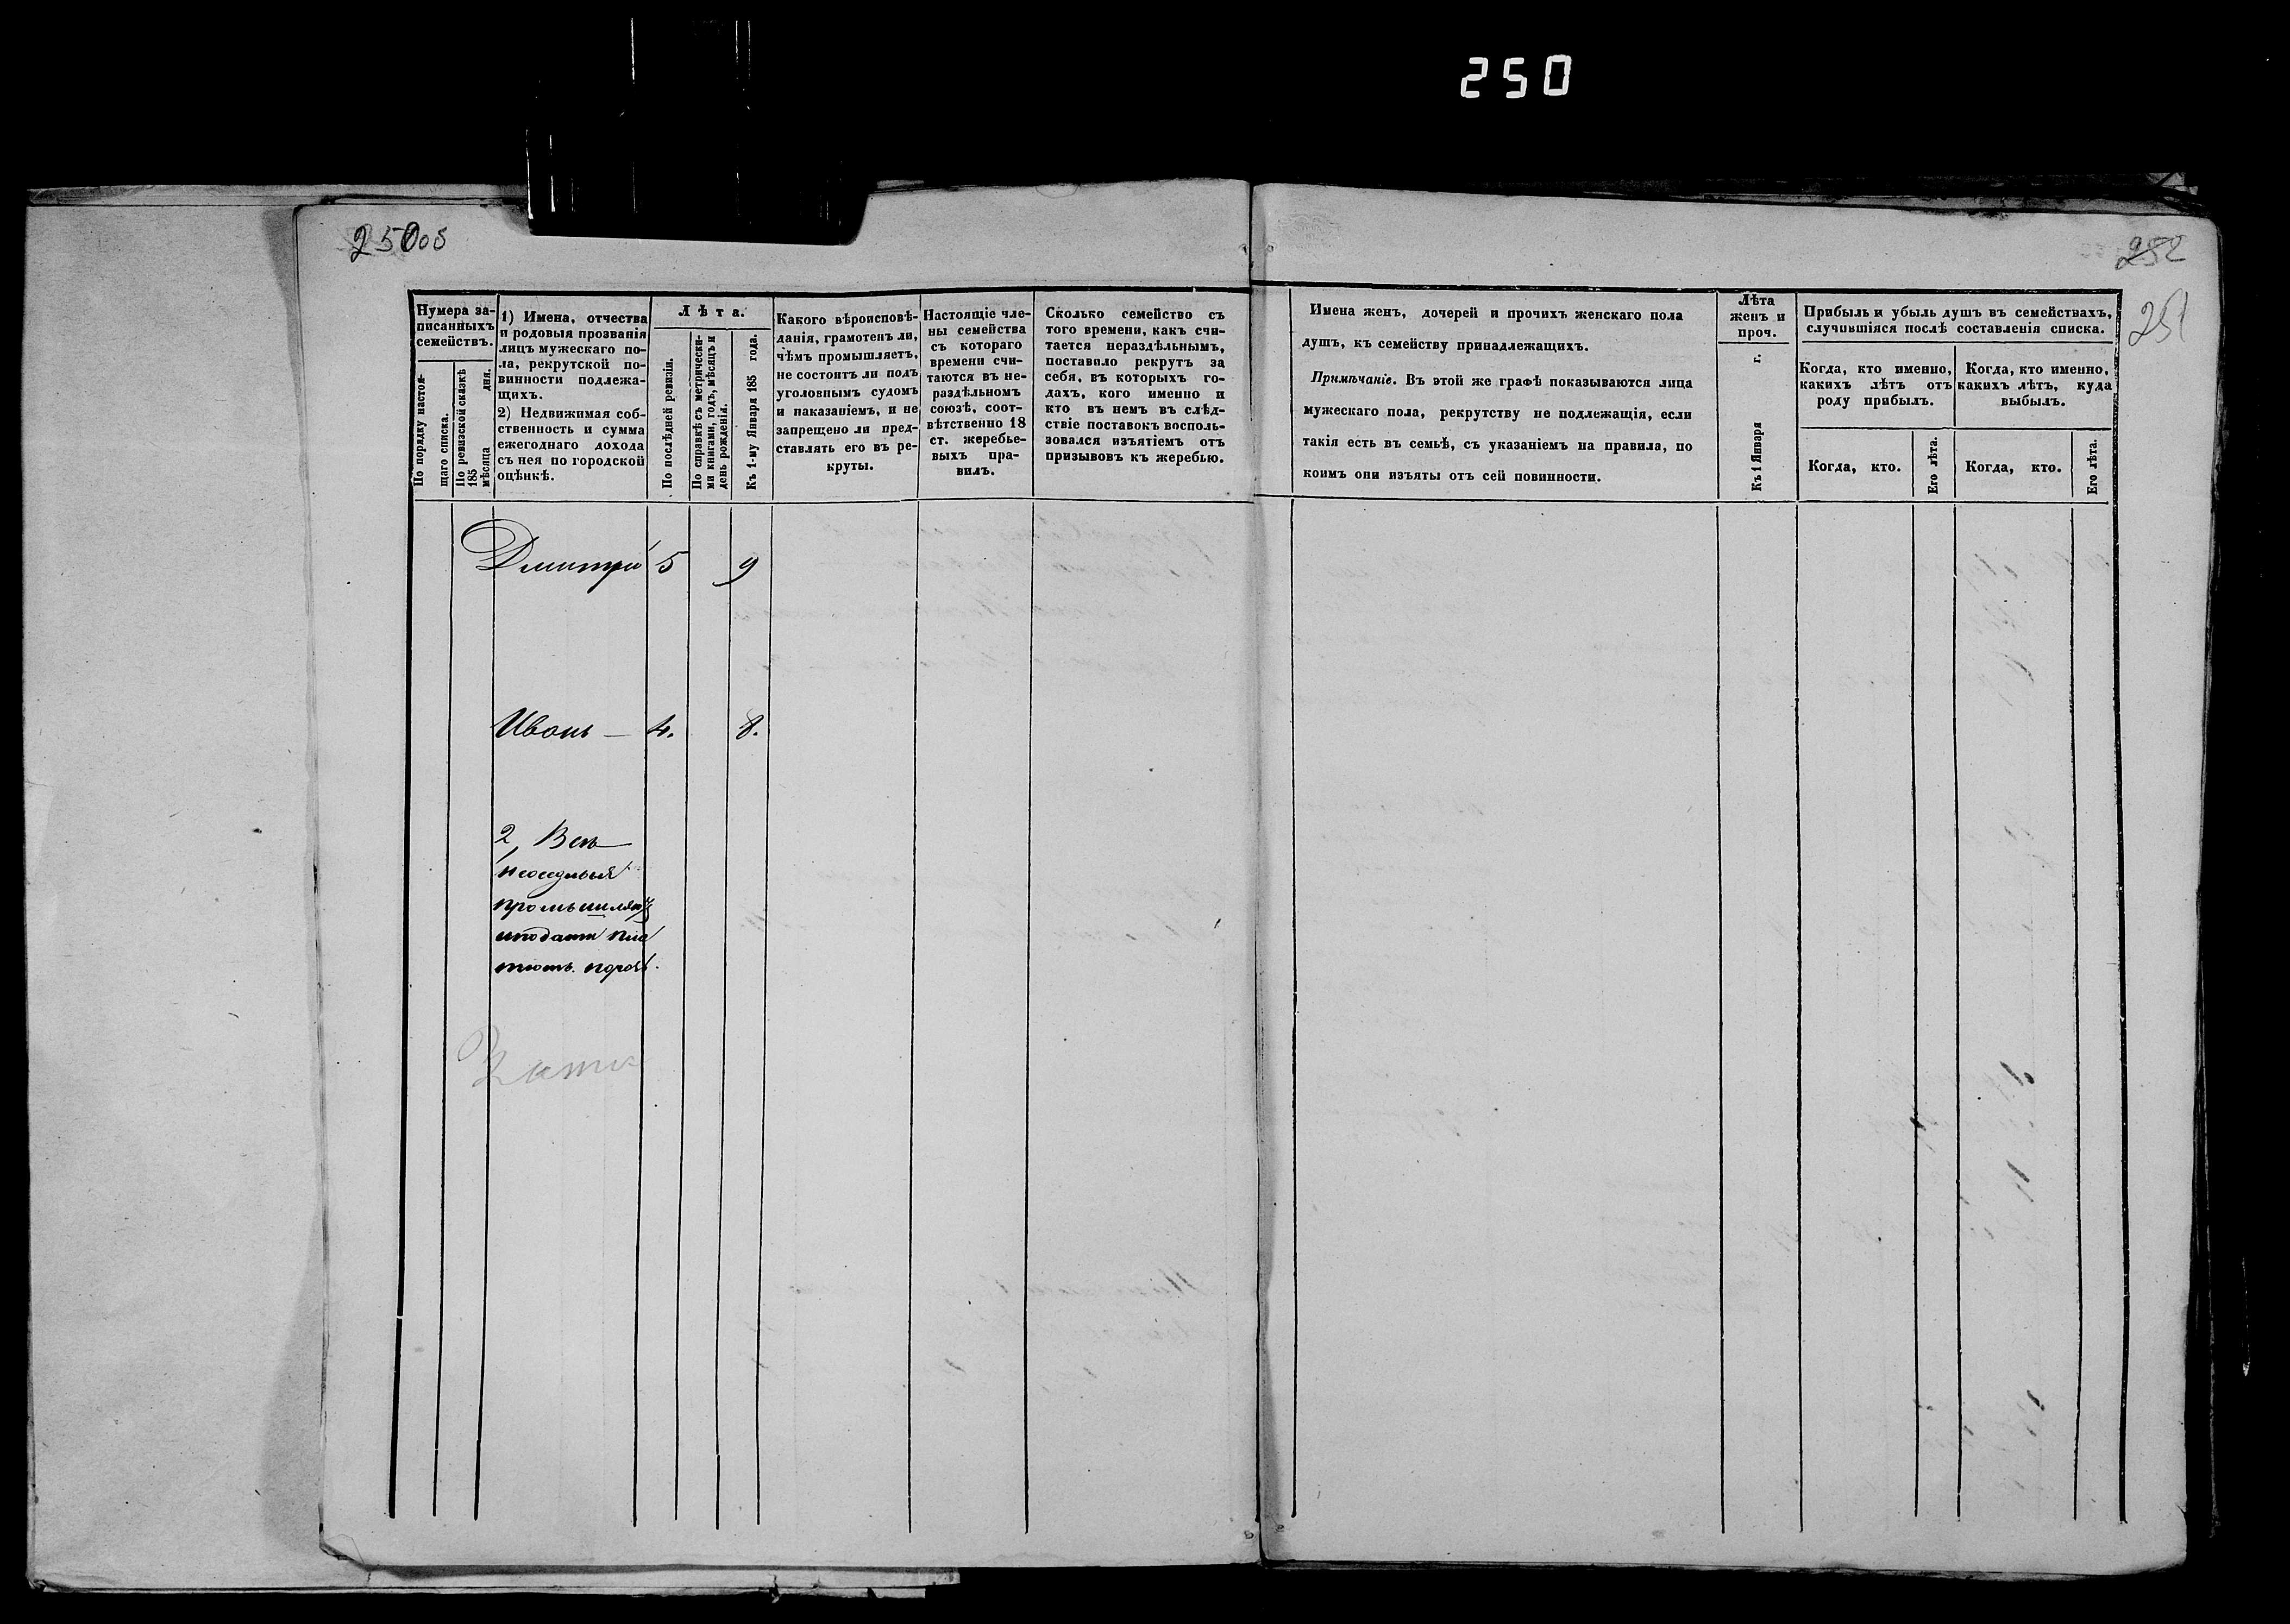 250
25005
252
251
Нумера за-
писанныхъ
семействъ.
По порядку настоя-
щаго списка.
По ревизской сказкѣ
185
мѣсяца дня.
1) Имена, отчества
и родовыя прозванія
лицъ мужескаго по-
ла, рекрутской по-
винности подлежа-
щихъ.
2) Недвижимая соб-
ственность и сумма
ежегоднаго дохода
съ нея по городской
оцѣнкѣ.
Лѣта.
По послѣдней ревизіи.
По справкѣ съ метрически-
ми книгами, годъ, мѣсяцъ и
день рожденія.
Къ 1-му Января 185 года.
Какого вѣроисповѣ-
данія, грамотенъ ли,
чѣмъ промышляетъ,
не состоитъ ли подъ
уголовнымъ судомъ
и наказаніемъ, и не
запрещено ли пред-
ставлять его въ ре-
круты.
Настоящіе чле-
ны семейства
съ котораго
времени счи-
таются въ не-
раздѣльномъ
союзѣ, соот-
вѣтственно 18
ст. жеребье-
выхъ пра-
вилъ.
Сколько семейство съ
того времени, какъ счи-
тается нераздѣльнымъ,
поставило рекрутъ за
себя, въ которыхъ го-
дахъ, кого именно и
кто въ немъ въ слѣд-
ствіе поставокъ восполь-
зовался изъятіемъ отъ
призывовъ къ жеребью.
Имена женъ, дочерей и прочихъ женскаго пола
душъ, къ семейству принадлежащихъ.
Примѣчаніе. Въ этой же графѣ показываются лица
мужескаго пола, рекрутству не подлежащія, если
такія есть въ семьѣ, съ указаніемъ на правила, по
коимъ они изъяты отъ сей повинности.
Лѣта
женъ и
проч.
Къ 1 Января г.
Прибыль и убыль душъ въ семействахъ,
случившіяся послѣ составленія списка.
Когда, кто именно,
какихъ лѣтъ отъ
роду прибылъ.
Когда, кто.
Его лѣта.
Когда, кто именно,
какихъ лѣтъ, куда
выбылъ.
Когда, кто.
Его лѣта.
Дмитрій 5 9
Иванъ — 4. 8.
2,